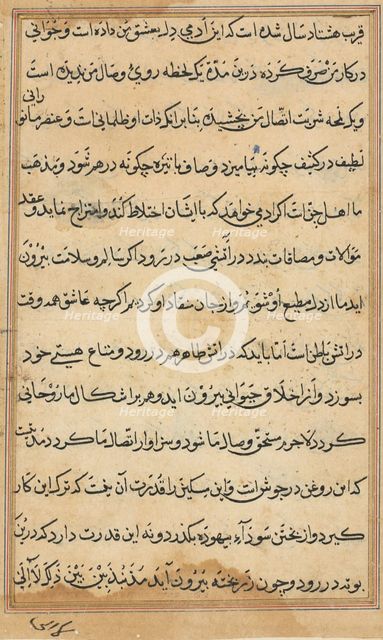 قرب هشتاد سال شده است که این آدمی دل بعشق من داده است و جوانی
در کار من صرف کرده درین مدة یک لحظه روی وصال من ندیده است
و یک لمحه شربت اتصال من نچشیده بنابر آنکه ذات او ظلمانی است و عنصر ما نورانی
لطیف در کثیف چگونه بیامیزد و صاف با تیره چگونه درهم شود و مذهب
ما اهل جنات اگر آدمی خواهد که با ایشان اختلاط کند و امتزاج نماید و عقد
موالات و مصافات بندد در آتشی صعب در رود اگر سالم و سلامت بیرون
آید ما از دل مطیع او شویم و از جان منقاد او گردیم اگرچه عاشق همه وقت
در آتش باطن است اما باید که در آتش ظاهر هم در رود و متاع هستی خود
بسوزد و از اخلاق حیوانی بیرون آید و هم براشکال ما روحانی
گردد لاجرم مستحق وصال ما شود و سزاوار اتصال ما گردد مدتیست
که این روغن در جوش است و این مسکین را قدرت آن نیست که ترک این کار
گیرد و از پختن سوداء بیهوده بگذرد و نه این قدرت دارد که درین
بوته در رود و چون زر پخته بیرون آید مذبذبین بین ذلک لا الی
heritage
Heritage
Images